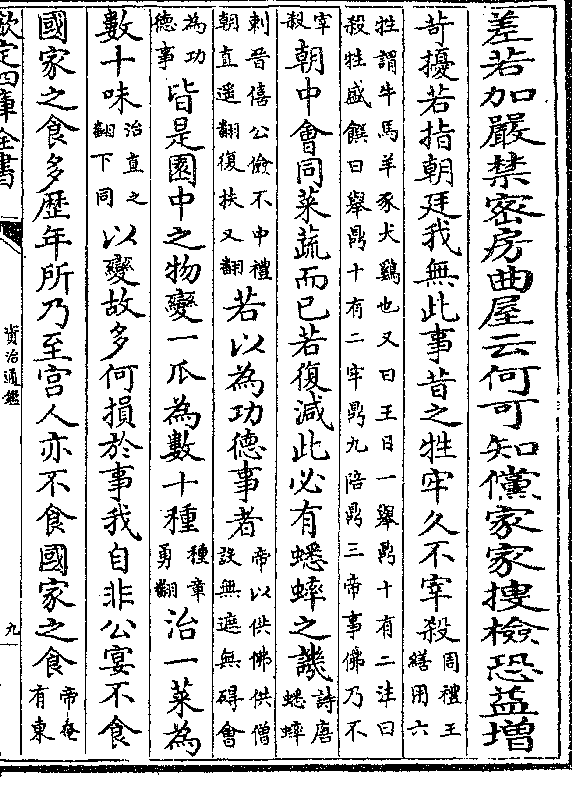 差若加嚴禁密房曲屋云何可知儻家家搜檢恐益增
苛擾若指朝廷我無此事昔之牲牢久不宰殺周禮王繕用六
牲謂牛馬羊豕犬鷄也又曰王日一舉鼎十有二注曰殺牲盛饌曰舉鼎十有二牢鼎九陪鼎三帝事佛乃不
宰殺朝中會同菜蔬而已若復減此必有蟋蟀之譏詩唐蟋蟀
刺晉僖公儉不中禮朝直遥翻復扶又翻若以為功德事者帝以供佛供僧設無遮無碍會
為功德事皆是園中之物變一瓜為數十種種章勇翻治一菜為
數十味治直之翻下同以變故多何損於事我自非公宴不食
國家之食多歷年所乃至宮人亦不食國家之食帝奄有東
欽定四庫全書
資治通鑑
九